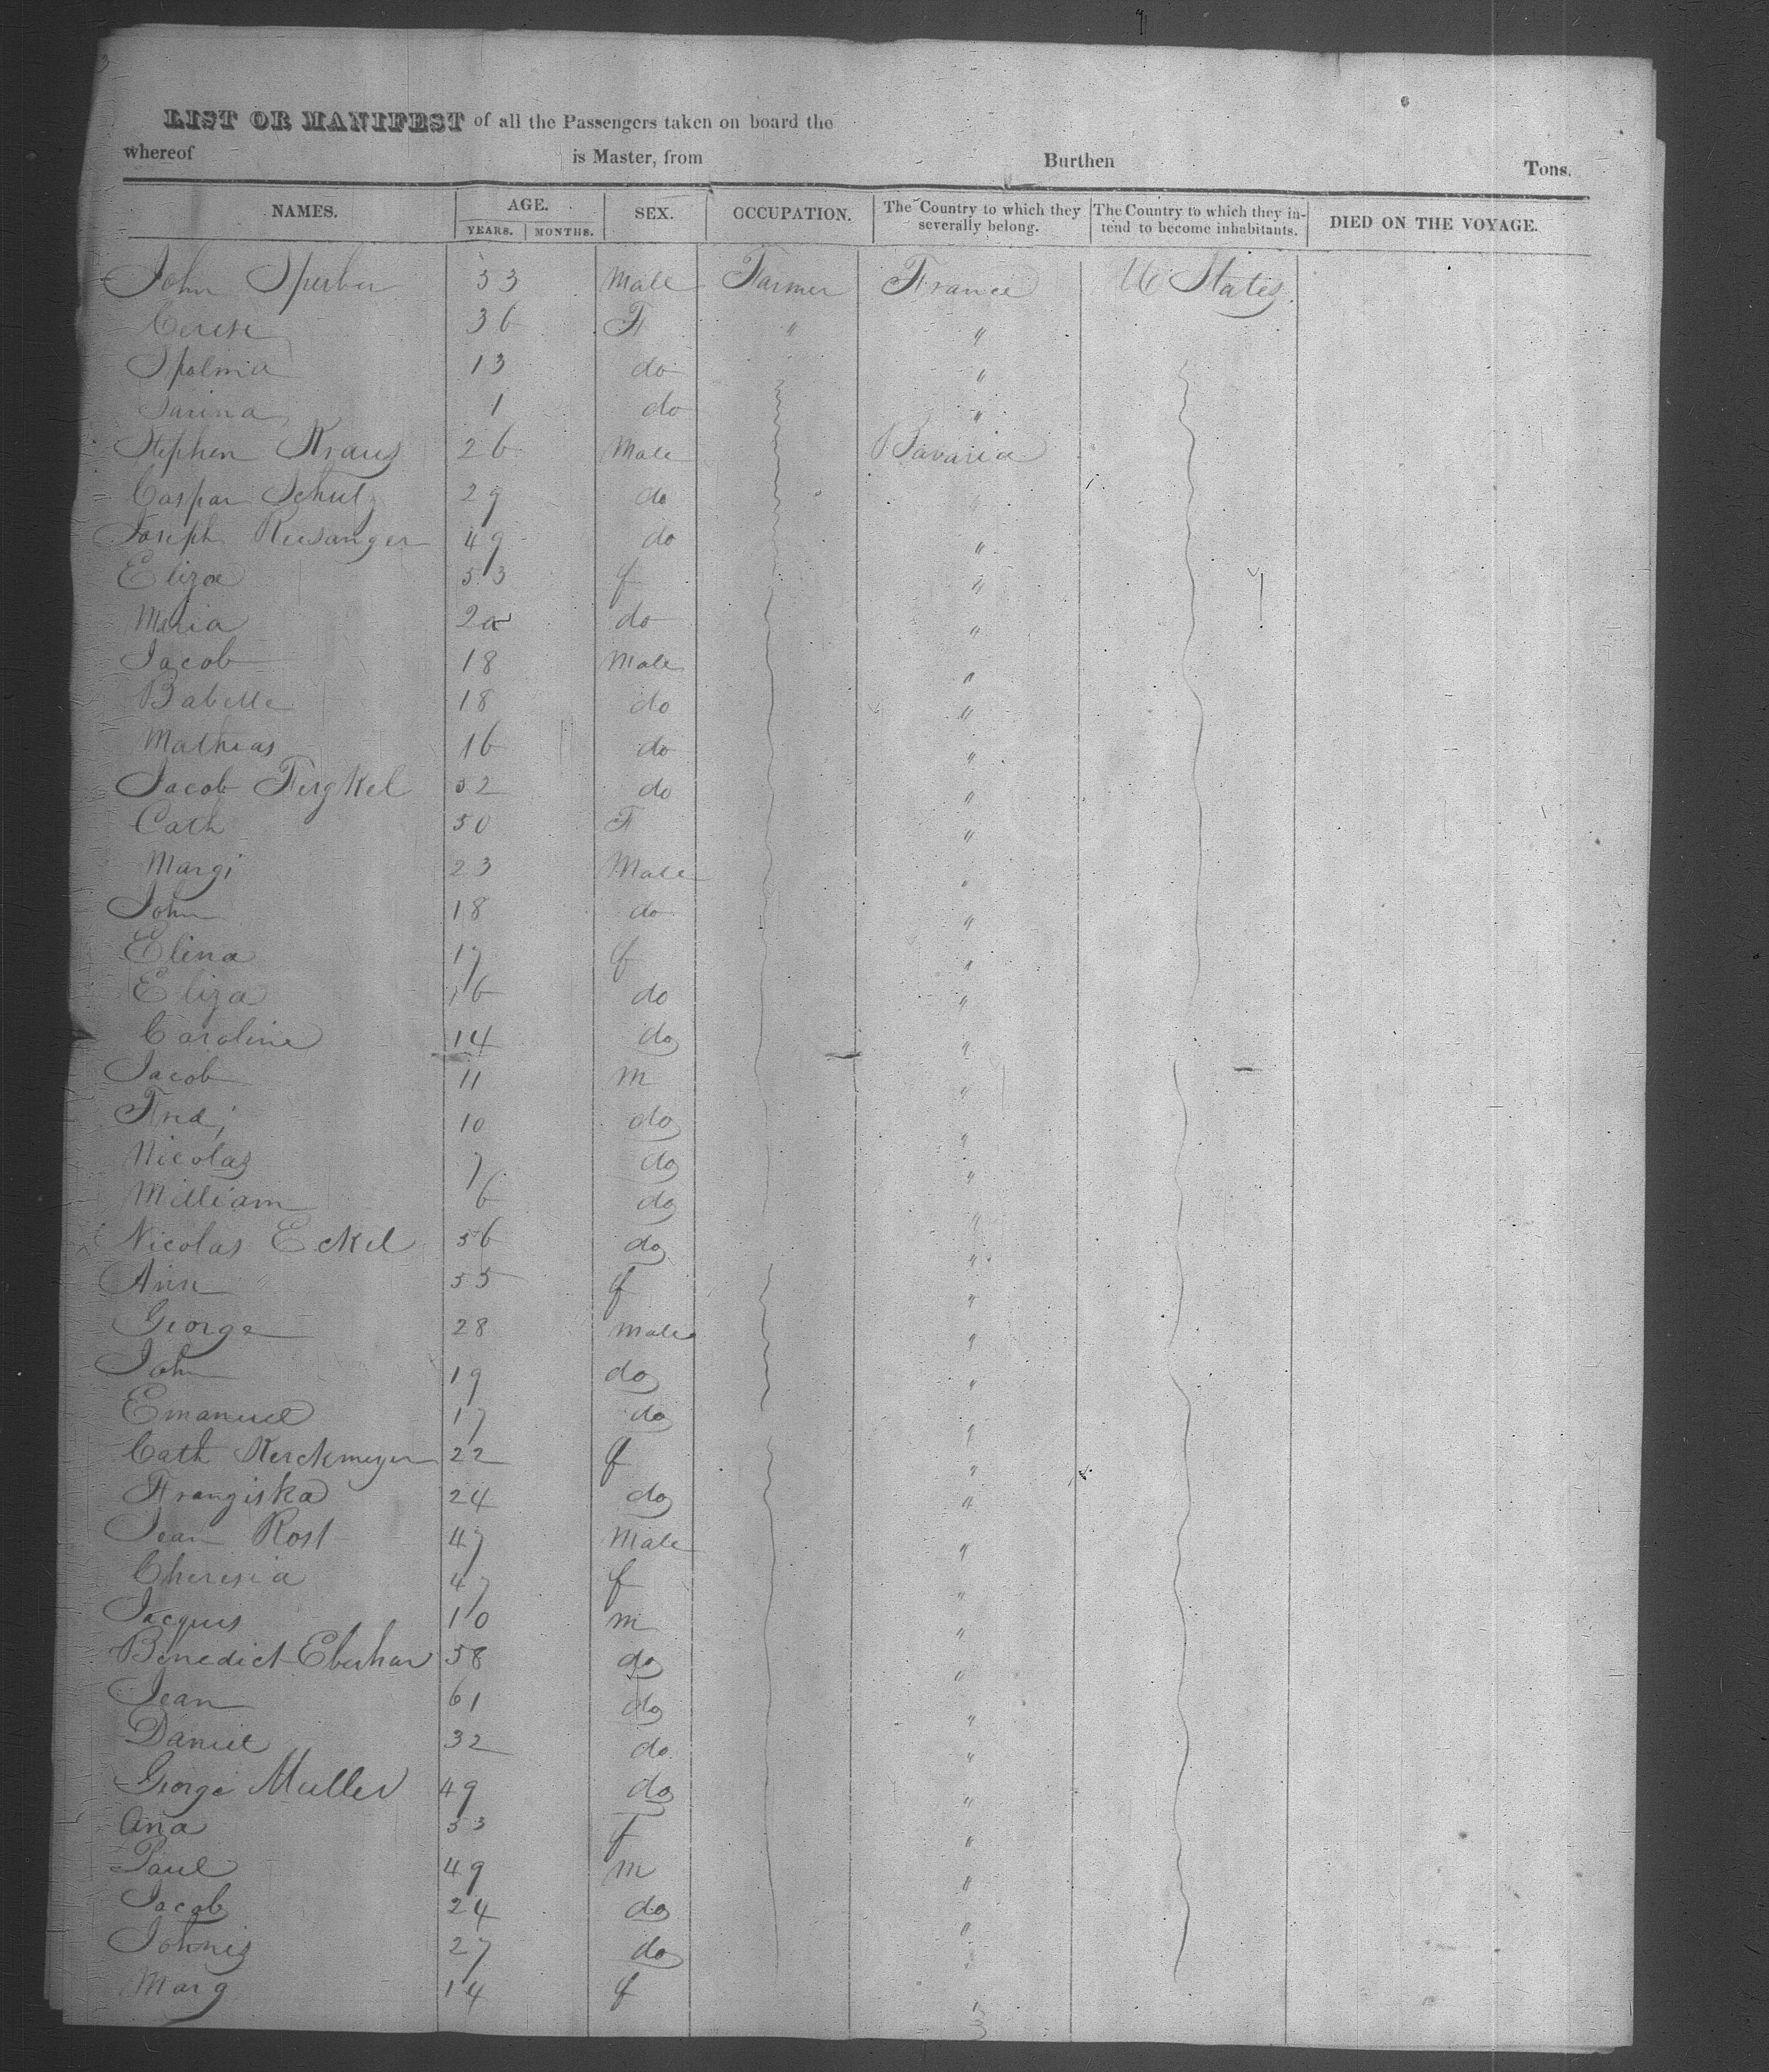 LIST OR MANIFEST of all the Passengers taken on board the
whereof is Master, from Burthen Tons.
NAMES. AGE. SEX. OCCUPATION. The Country to which they severally belong. The Country to which they intend to become inhabitants. DIED ON THE VOYAGE.
YEARS. MONTHS.
John Sperber 33 Male Farmer France U States
Cerese 36 F " "
13 do "
1 do "
Stephen Kraus 26 Male Bavaria
Caspar Schulz 29 do "
Joseph Reisanger 49 do "
Eliza 53 f "
Maria do "
Jacob 18 Male "
Babette 18 do "
Mathias 16 do "
Jacob 52 do "
Cath 50 F "
Margi 23 Male "
John 18 do "
Elina 17 f "
Eliza 16 do "
Caroline 14 do "
Jacob 11 m "
Frd; 10 do "
Nicolas 7 do "
William 6 do "
Nicolas Eckel 56 do "
Ann 55 f "
George 28 male "
John 19 do "
Emanuel 17 do "
Cath Kerckmeyer 22 f "
Franziska 24 do "
Jean Rost 47 Male "
Cheresia 47 f "
Jacques 10 m "
Benedict Eberhar 58 do "
Jean 61 do "
Daniel 32 do "
George Muller 49 do "
Ana 53 f "
Paul 49 m "
Jacob 24 do "
27 do "
Marg 14 f "